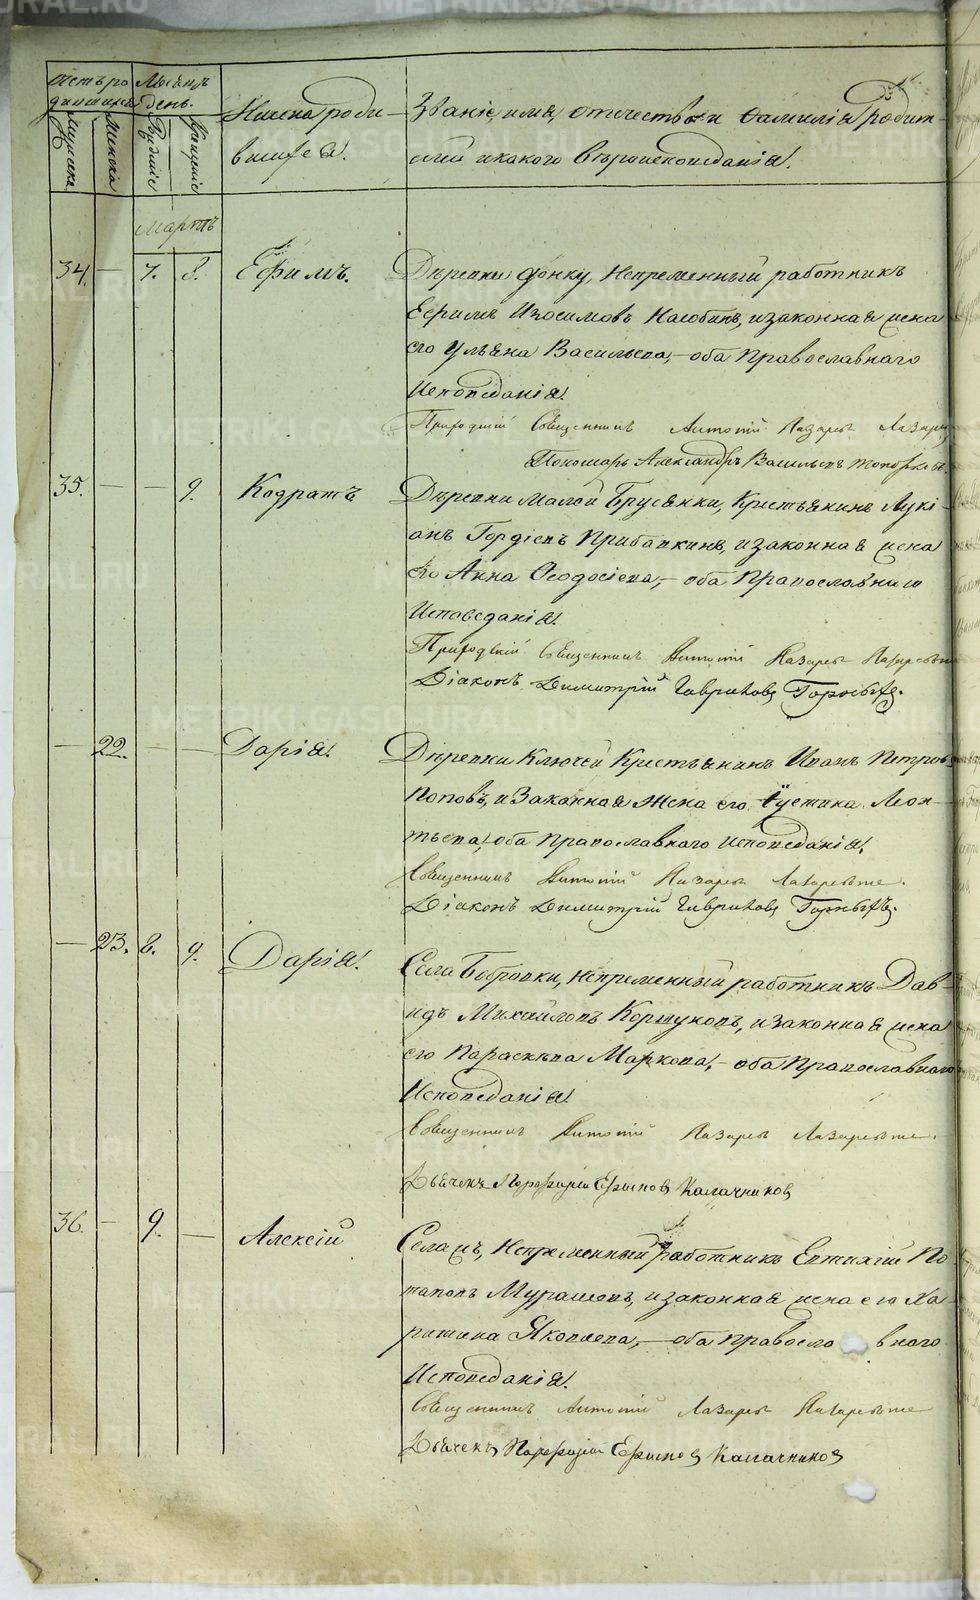 Счетъ ро Мѣсяцъ
дившихся день.
Имена роди
вшихся.
Званіе, имя, отечество и фамилія Родит
лей и какого вѣроисповеданія.
Мужеска
Женска
Рожденіе
Крещеніе
Мартъ
34. — 7. 8. Ефимъ. Деревни Фонку, Непременный работникъ
Ефимъ Изосимовъ Насобинъ, и законная жена
его Ульяна Васильева, — оба Православнаго
Исповеданія.
Приходскій Священникъ Антоній Лазаревъ Лазаре
Пономарь Александръ Васильевъ
35. — — 9. Кодратъ Деревни Малой Брусянки, Крестьянинъ Лукі-
анъ Гордіевъ Прибавкинъ, и законная жена
его Анна Ѳеодосіева, — оба Православнаго
Исповеданія.
Приходскій Священникъ Антоній Лазаревъ
Діаконъ Димитрій Гавриловъ Горныхъ.
— 22. — — Дарія. Деревни Ключей Крестьянинъ Иванъ Петровъ
Поповъ, и Законная Жена его Іустина Леон-
тьева, оба Православнаго Исповеданія.
Священникъ Антоній Лазаревъ
Діаконъ Димитрій Гавриловъ Горныхъ.
— 23. 8. 9. Дарія. Села Бобровки, Непременный работникъ Дав-
идъ Михайловъ Коршуновъ, и законная жена
его Параскева Маркова, — оба Православнаго
Исповеданія.
Священникъ Антоній Лазаревъ
Дьячекъ Порфирій Ефимовъ Калачниковъ
36. — 9. — Алексій Села тожъ, Непременный работникъ Евтихій По
таповъ Мурашовъ, и законная жена его Ха-
ритина Яковлева, — оба Правосла внаго
Исповеданія.
Священникъ Антоній Лазаревъ
Дьячекъ Порфирій Ефимовъ Калачниковъ
METRIKI.GASO-URAL.RU